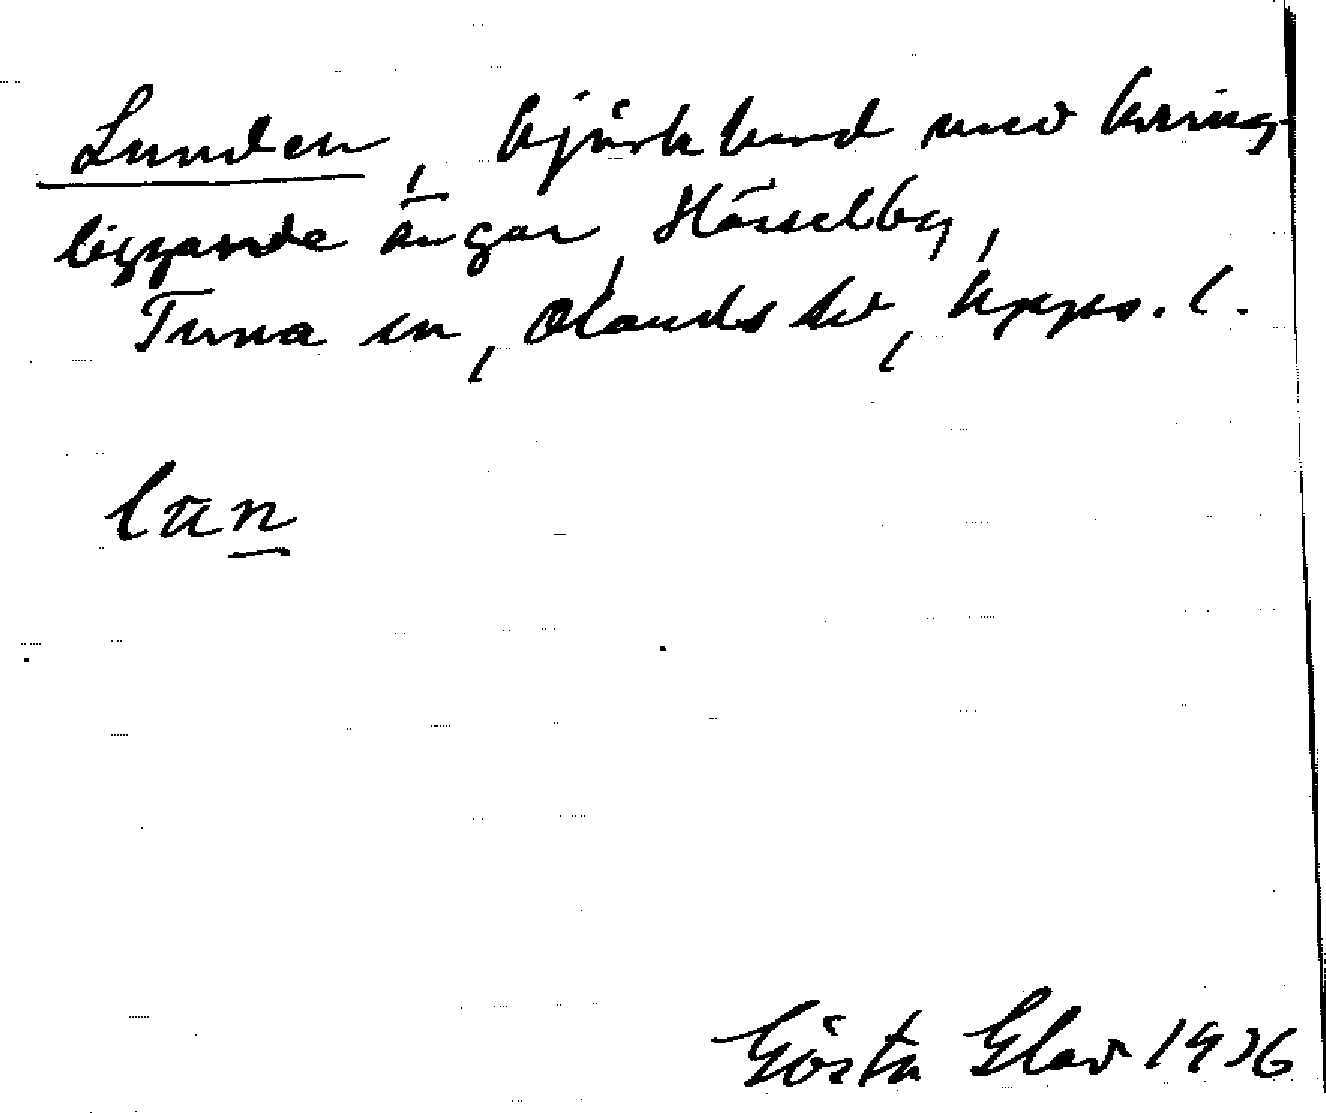 Lunden, björklund med kring-
liggande ängar, Hässelby,
Tuna sn, Olands hd, Upps. l.
Gösta Elav 1936